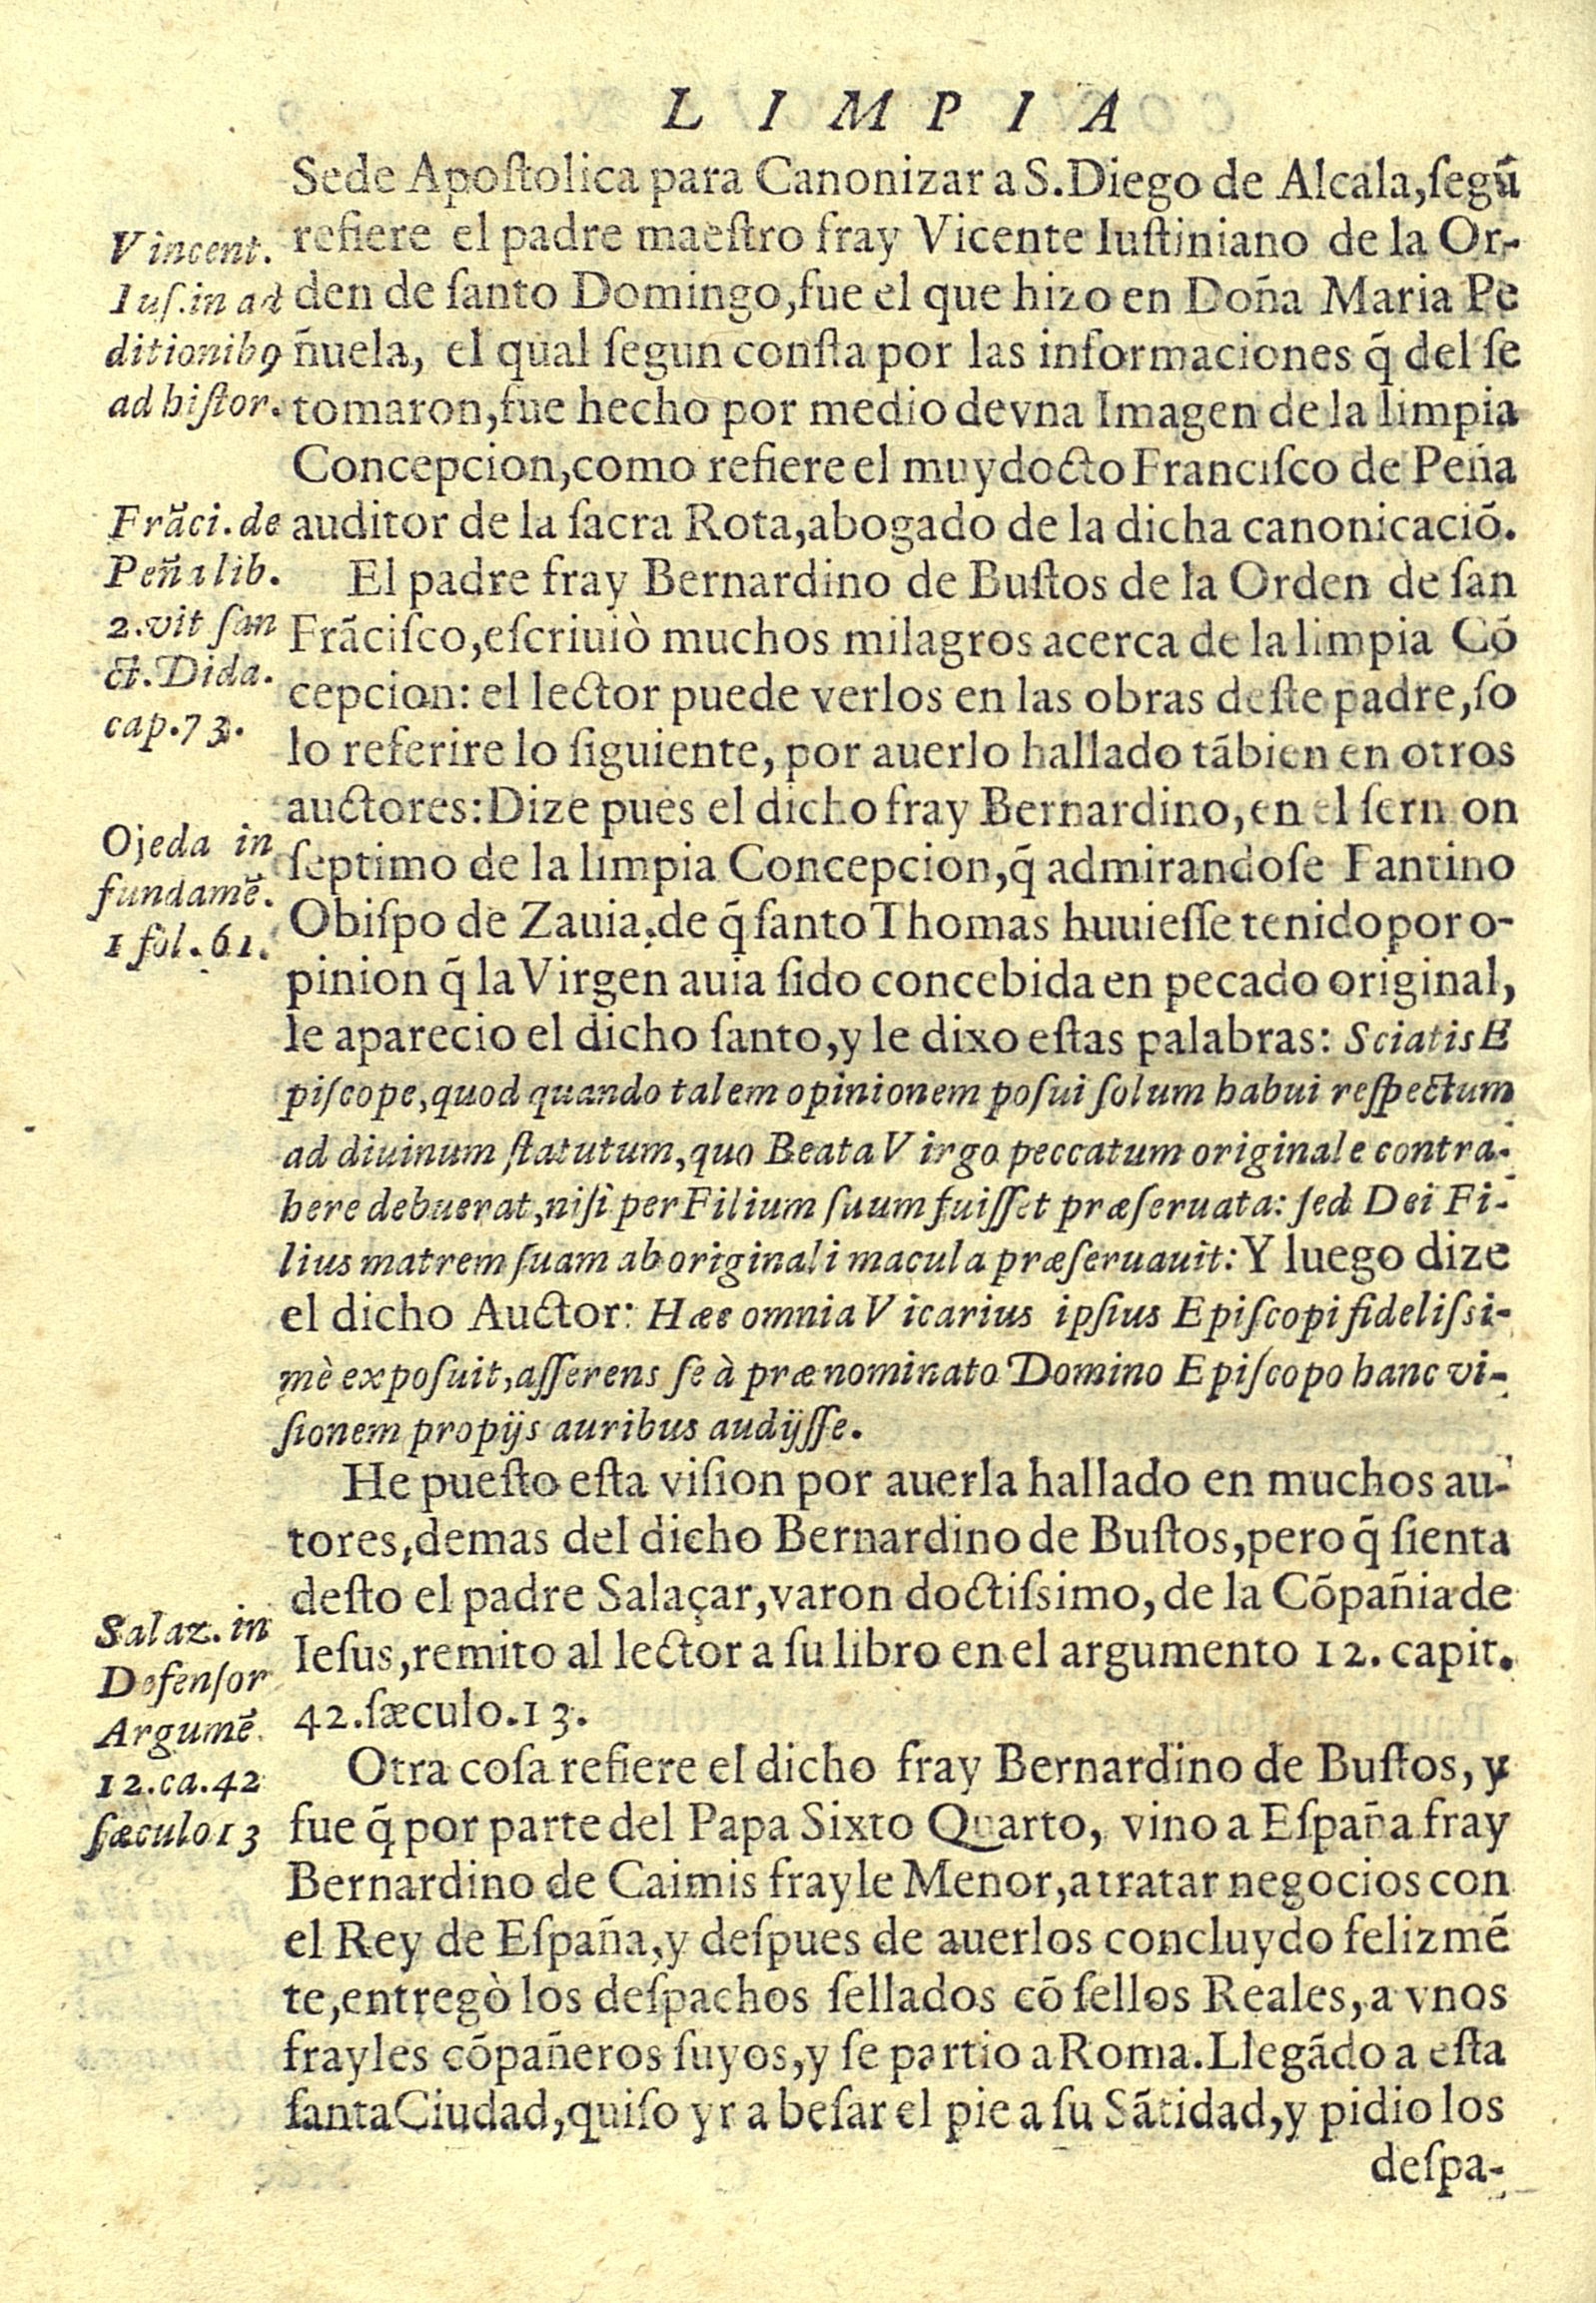 LIMPIA
Sede Apoſtolica para Canonizar a S.Diego de Alcala,ſegũ
refiere el padre maeſtro fray Vicente Iuſtiniano de la Or-
den de ſanto Domingo,fue el que hizo en Doña Maria Pe
ñuela, el qual ſegun conſta por las informaciones q̃ del ſe
tomaron,fue hecho por medio de vna Imagen de la limpia
Concepcion,como refiere el muy docto Franciſco de Peña
auditor de la ſacra Rota,abogado de la dicha canonicaciõ.
El padre fray Bernardino de Buſtos de la Orden de ſan
Frãciſco,eſcriuiò muchos milagros acerca de la limpia Cõ
cepcion: el lector puede verlos en las obras deſte padre,ſo
lo referire lo ſiguiente, por auerlo hallado tãbien en otros
auctores:Dize pues el dicho fray Bernardino,en el ſermon
ſeptimo de la limpia Concepcion,q̃ admirandoſe Fantino
Obiſpo de Zauia,de q̃ ſanto Thomas huuieſſe tenido por o-
pinion q̃ la Virgen auia ſido concebida en pecado original,
le aparecio el dicho ſanto,y le dixo eſtas palabras: Sciatis E
piſcope,quod quando talem opinionem poſui ſolum habui reſpectum
ad diuinum ſtatutum,quo Beata Virgo peccatum originale contra-
here debuerat,niſi per Filium ſuum fuiſſet præſeruata: ſed Dei Fi-
lius matrem ſuam ab originali macula præſeruauit: Y luego dize
el dicho Auctor: Hæc omnia Vicarius ipſius Epiſcopi fideliſsi-
mè expoſuit,aſſerens ſe à prænominato Domino Epiſcopo hanc vi-
ſionem propijs auribus audijſſe.
He pueſto eſta viſion por auerla hallado en muchos au-
tores,demas del dicho Bernardino de Buſtos,pero q̃ ſienta
deſto el padre Salaçar,varon doctiſsimo,de la Cõpañia de
Ieſus,remito al lector a ſu libro en el argumento 12. capit.
42.ſæculo.13.
Otra coſa refiere el dicho fray Bernardino de Buſtos, y
fue q̃ por parte del Papa Sixto Quarto, vino a Eſpaña fray
Bernardino de Caimis frayle Menor,a tratar negocios con
el Rey de Eſpaña,y deſpues de auerlos concluydo felizmẽ
te,entregò los deſpachos ſellados cõ ſellos Reales,a vnos
frayles cõpañeros ſuyos,y ſe partio a Roma.Llegãdo a eſta
ſanta Ciudad,quiſo yr a beſar el pie a ſu Sãtidad,y pidio los
deſpa-
Vincent.
Iuſ.in ad
ditionibꝰ
ad hiſtor.
Frãci.de
Peña lib.
2.vit ſan
ct.Dida.
cap.73.
Ojeda in
fundamẽ.
1 fol.61.
Salaz.in
Defenſor
Argumẽ.
12.ca.42
ſæculo 13